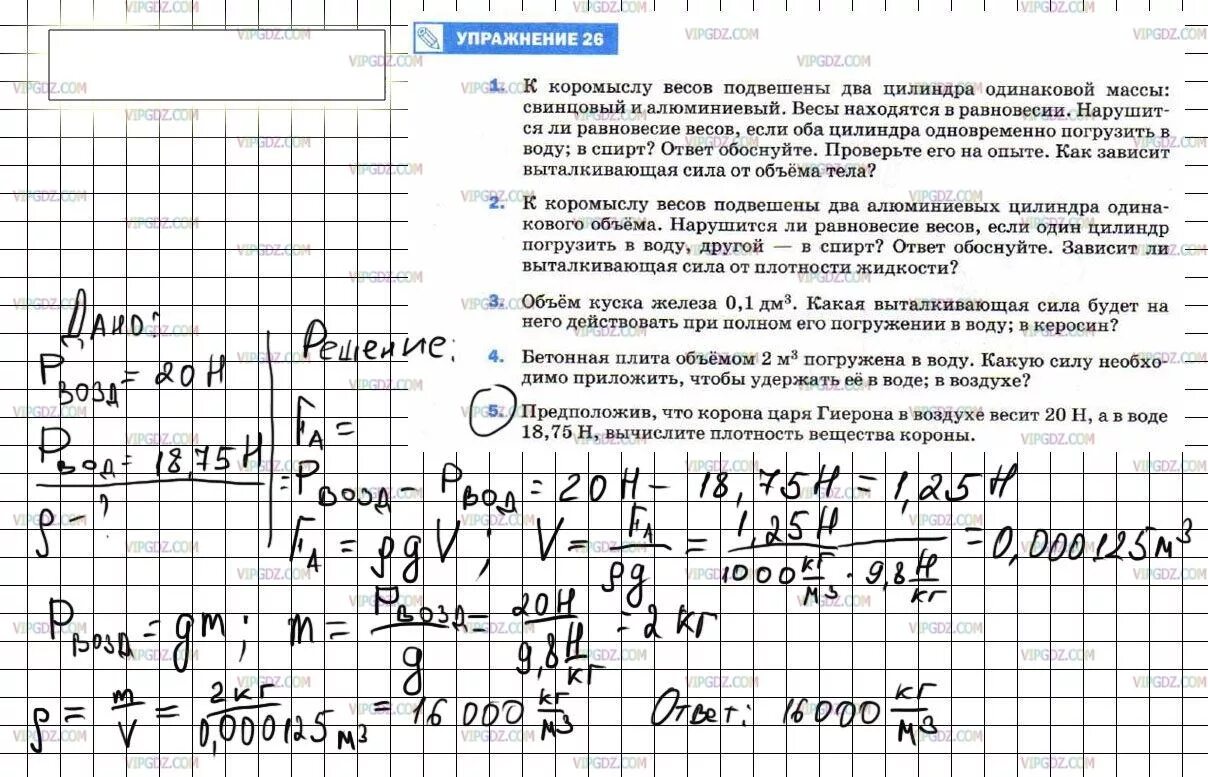 УПРАЖНЕНИЕ 26
1. К коромыслу весов подвешены два цилиндра одинаковой массы:
свинцовый и алюминиевый. Весы находятся в равновесии. Нарушит-
ся ли равновесие весов, если оба цилиндра одновременно погрузить в
воду; в спирт? Ответ обоснуйте. Проверьте его на опыте. Как зависит
выталкивающая сила от объёма тела?
2. К коромыслу весов подвешены два алюминиевых цилиндра одина-
кового объёма. Нарушится ли равновесие весов, если один цилиндр
погрузить в воду, другой — в спирт? Ответ обоснуйте. Зависит ли
выталкивающая сила от плотности жидкости?
3. Объём куска железа 0,1 дм³. Какая выталкивающая сила будет на
него действовать при полном его погружении в воду; в керосин?
4. Бетонная плита объёмом 2 м³ погружена в воду. Какую силу необхо-
димо приложить, чтобы удержать её в воде; в воздухе?
5. Предположив, что корона царя Гиерона в воздухе весит 20 Н, а в воде
18,75 Н, вычислите плотность вещества короны.
Дано:
P возд = 20 Н
P вод = 18,75 Н
ρ - ?
Решение:
F_A =
= P возд - P вод = 20 Н - 18,75 Н = 1,25 Н
F_A = ρgV; V = F_A / ρg = 1,25 Н / 1000 кг/м³ · 9,8 Н/кг = 0,000125 м³
P возд = gm; m = P возд / g = 20 Н / 9,8 Н/кг = 2 кг
ρ = m / V = 2 кг / 0,000125 м³ = 16 000 кг/м³ Ответ: 16 000 кг/м³
VIPGDZ.COM